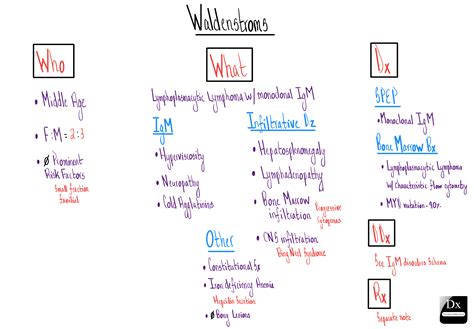 Waldenstroms
Who
• Middle Age
• F:M = 2:3
• Ø Prominent
Risk Factors
Small fraction
familial
What
Lymphoplasmacytic Lymphoma w/ monoclonal IgM
IgM
• Hyperviscosity
• Neuropathy
• Cold Agglutinins
Infiltrative Dz
• Hepatosplenomegaly
• Lymphadenopathy
• Bone Marrow
infiltration
Progressive
Cytopenias
• CNS infiltration
Bing Neel Syndrome
Other
• Constitutional Sx
• Iron deficiency Anemia
Hepcidin Secretion
• Ø Bony Lesions
Dx
SPEP
• Monoclonal IgM
Bone Marrow Bx
• Lymphoplasmacytic Lymphoma
w/ characteristic flow cytometry
• MYD mutation - 90%
DDx
See IgM disorders Schema
Rx
Separate note
Dx